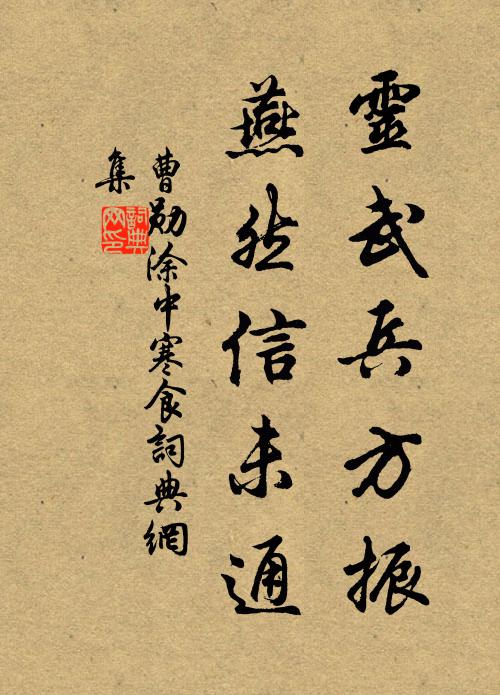 靈武兵方振
燕然信未通
曹勋涂中寒食詞典網
集
詞典
网印